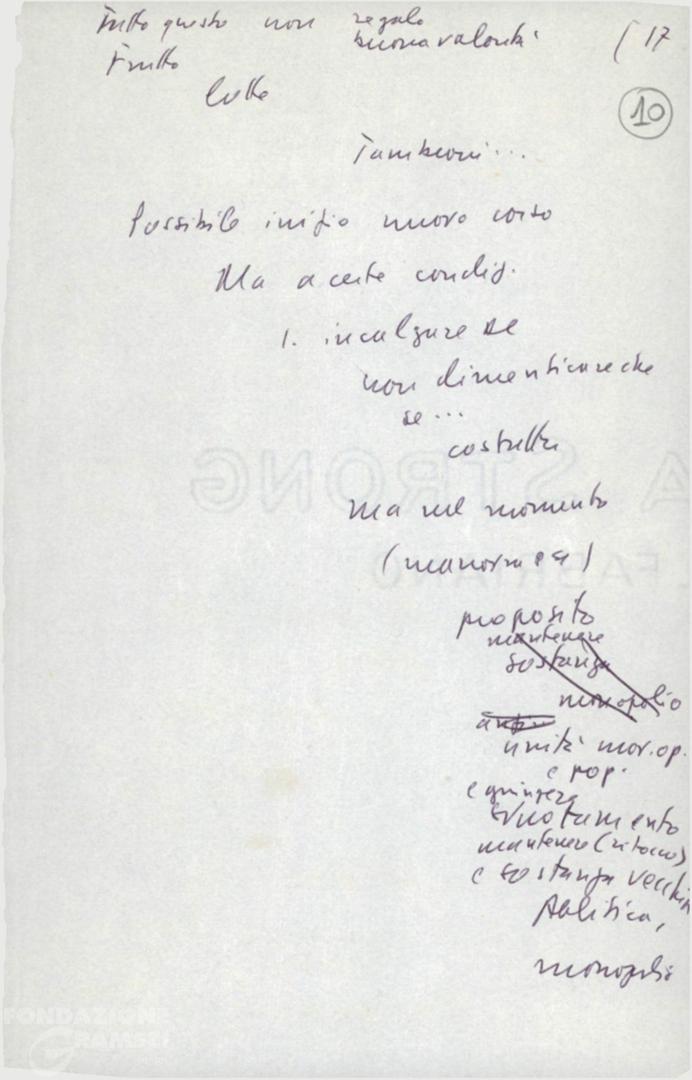 Tutto questo non regalo
buona volontà
( 17
Frutto
lotte
10
Tambroni...
Possibile inizio nuovo corso
Ma a certe condiz.
1. incalzare DC
non dimenticare che
se...
costretta
Ma nel momento
(manovra ea)
proposito
mantenere
sostanza
monopolio
unità mov. op.
e pop.
e giungere
svuotamento
mantenere (ritocco)
e sostanza vecchia
politica,
monopolio
A STRONG
FABRIANO
FONDAZIONE
GRAMSCI